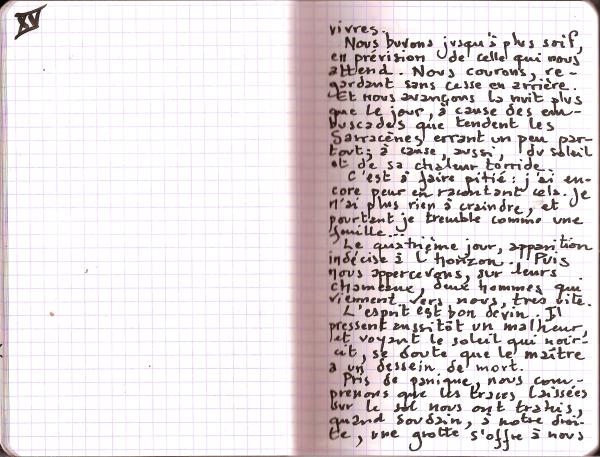 XV
vivres.
Nous buvons jusqu'à plus soif,
en prévision de celle qui nous
attend. Nous courons, re-
gardant sans cesse en arrière.
Et nous avançons la nuit plus
que le jour, à cause des em-
buscades que tendent les
Sarracènes errant un peu par-
tout; à cause, aussi, du soleil
et de sa chaleur torride.
C'est à faire pitié: j'ai en-
core peur en racontant cela. Je
n'ai plus rien à craindre, et
pourtant je tremble comme une
feuille...
Le quatrième jour, apparition
indécise à l'horizon. Puis
nous appercevons, sur leurs
chameaux, deux hommes qui
viennent vers nous, très vite.
L'esprit est bon devin. Il
pressent aussitôt un malheur,
et voyant le soleil qui noir-
cit, se doute que le maître
a un dessein de mort.
Pris de panique, nous com-
prenons que les traces laissées
sur le sol nous ont trahis,
quand soudain, à notre droi-
te, une grotte s'offre à nous